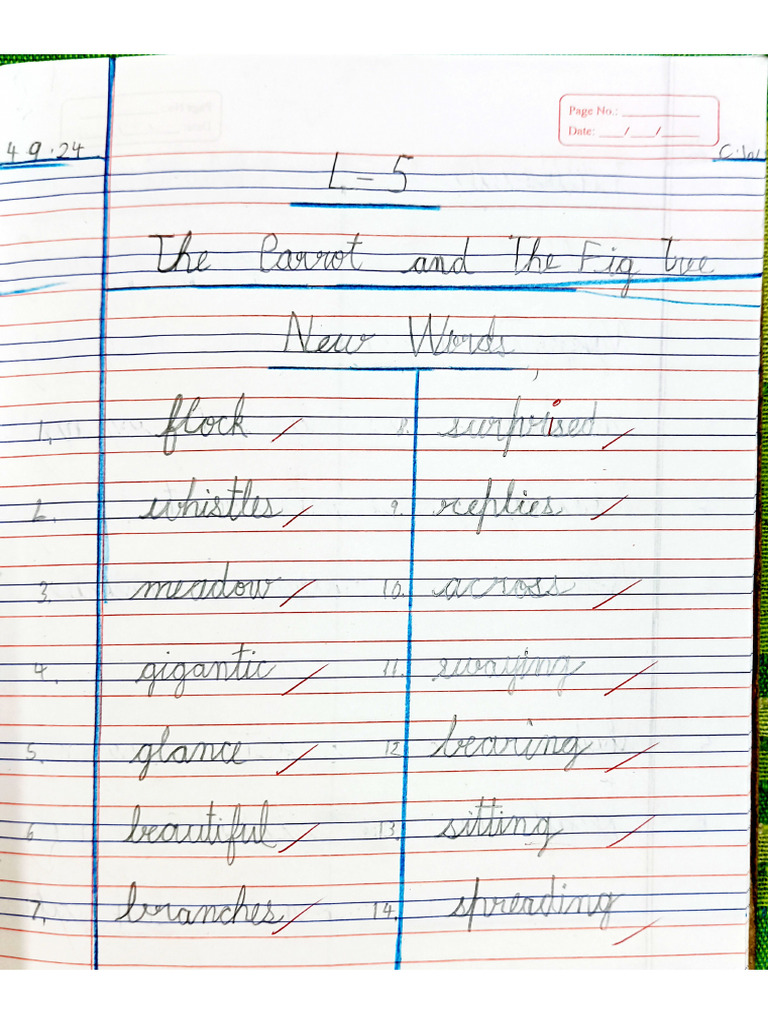 Page No.:
Date: __/__/__
4 9.24
C.W
L-5
The Parrot and The Fig tree
New Words
1. flock
2. whistles
3. meadow
4. gigantic
5. glance
6 beautiful
7. branches
8. surprised
9. replies
10. across
11. swaying
12 bearing
13. sitting
14. spreading